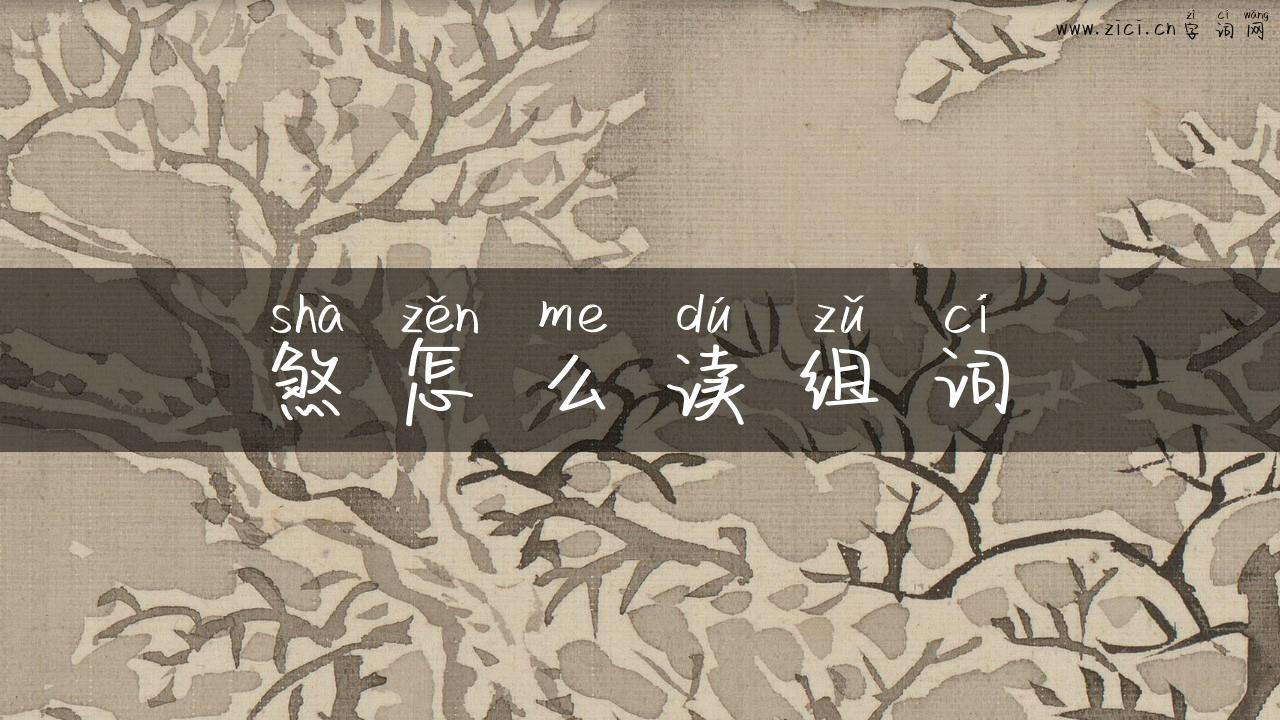 zì cí wǎng
www.zici.cn字词网
shà zěn me dú zǔ cí
煞怎么读组词